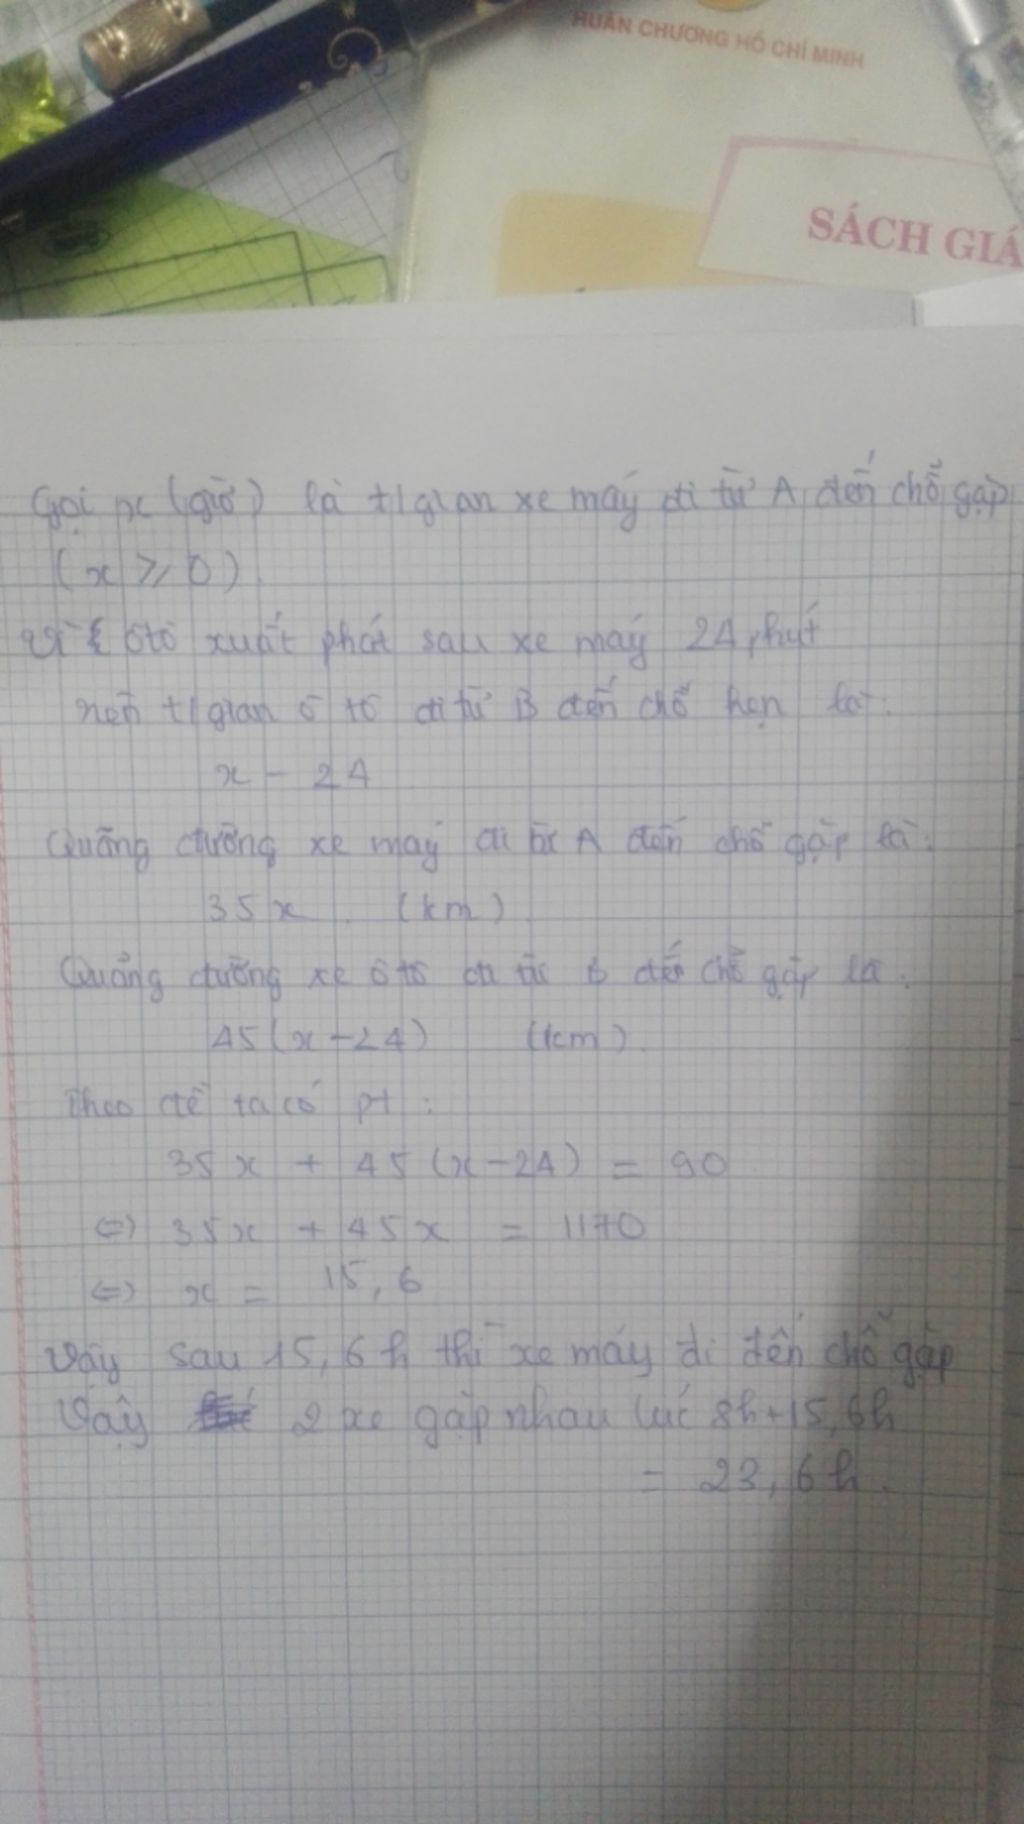 HUÂN CHƯƠNG HỒ CHÍ MINH
SÁCH GIÁ
Gọi x (giờ) là t/gian xe máy đi từ A đến chỗ gặp
(x ⩾ 0)
Vì ôtô xuất phát sau xe máy 24 phút
nên t/gian ô tô đi từ B đến chỗ hẹn là:
x - 24
Quãng đường xe máy đi từ A đến chỗ gặp là:
35x (km)
Quãng đường xe ô tô đi từ B đến chỗ gặp là:
45(x-24) (km).
Theo đề ta có pt:
35x + 45(x-24) = 90
<=> 35x + 45x = 1170
<=> x = 15,6
Vậy sau 15,6h thì xe máy đi đến chỗ gặp
Vậy 2 xe gặp nhau lúc 8h+15,6h
= 23,6h.